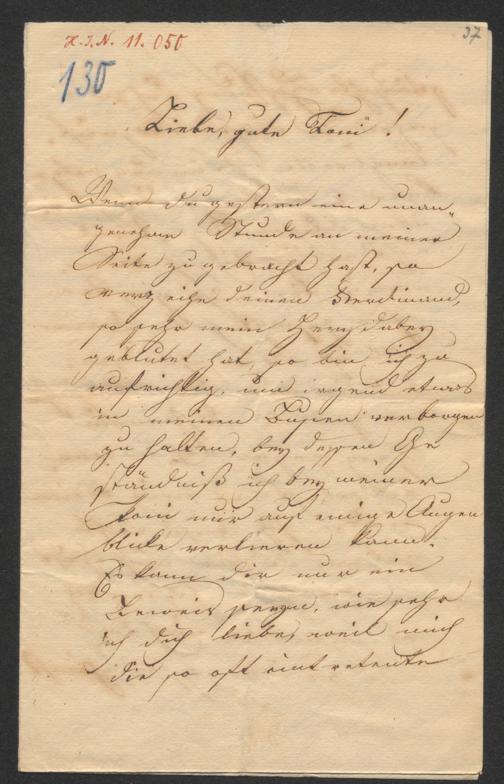 H.I.N. 11.050
37
130
Liebe, gute Toni!
Wenn du gestern eine unan„
genehme Stunde an meiner
Seite zugebracht hast, so
verzeihe deinem Ferdinand,
so sehr mein Herz dabey
geblutet hat, so bin ich zu
aufrichtig, um irgend etwas
in meinen Busen verborgen
zu halten, bey dessen Ge
ständniß ich bey meiner
Toni nur auf einige Augen
blicke verlieren kann.
Es kann dir nur ein
Beweis seyn, wie sehr
ich dich liebe, weil mich
die so oft eintretende